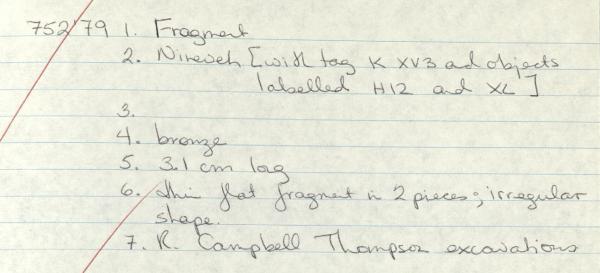 752'79 1. Fragment
2. Nineveh [with tag K XV3 and objects
labelled H12 and XL]
3.
4. bronze
5. 3.1 cm long
6. thin flat fragment in 2 pieces; irregular
shape.
7. R. Campbell Thompson excavations